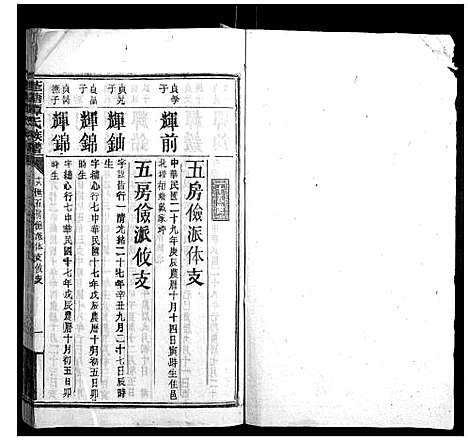 五房儉派体支
貞學子
輝前
中華民國二十九年庚辰農曆十月十四日寅時生住邑
五房儉派攸支
貞堯子
輝鈾
字 行一清光緒二十七年辛丑九月二十七日辰時生
貞晶子
輝錦
字繡心行七中華民國十七年戊辰農曆十月初五日卯時生
貞 撫子
輝錦
字繡心行七中華民國十七年戊辰農曆十月初五日卯時生
氏族譜
五房儉派体支攸支
一